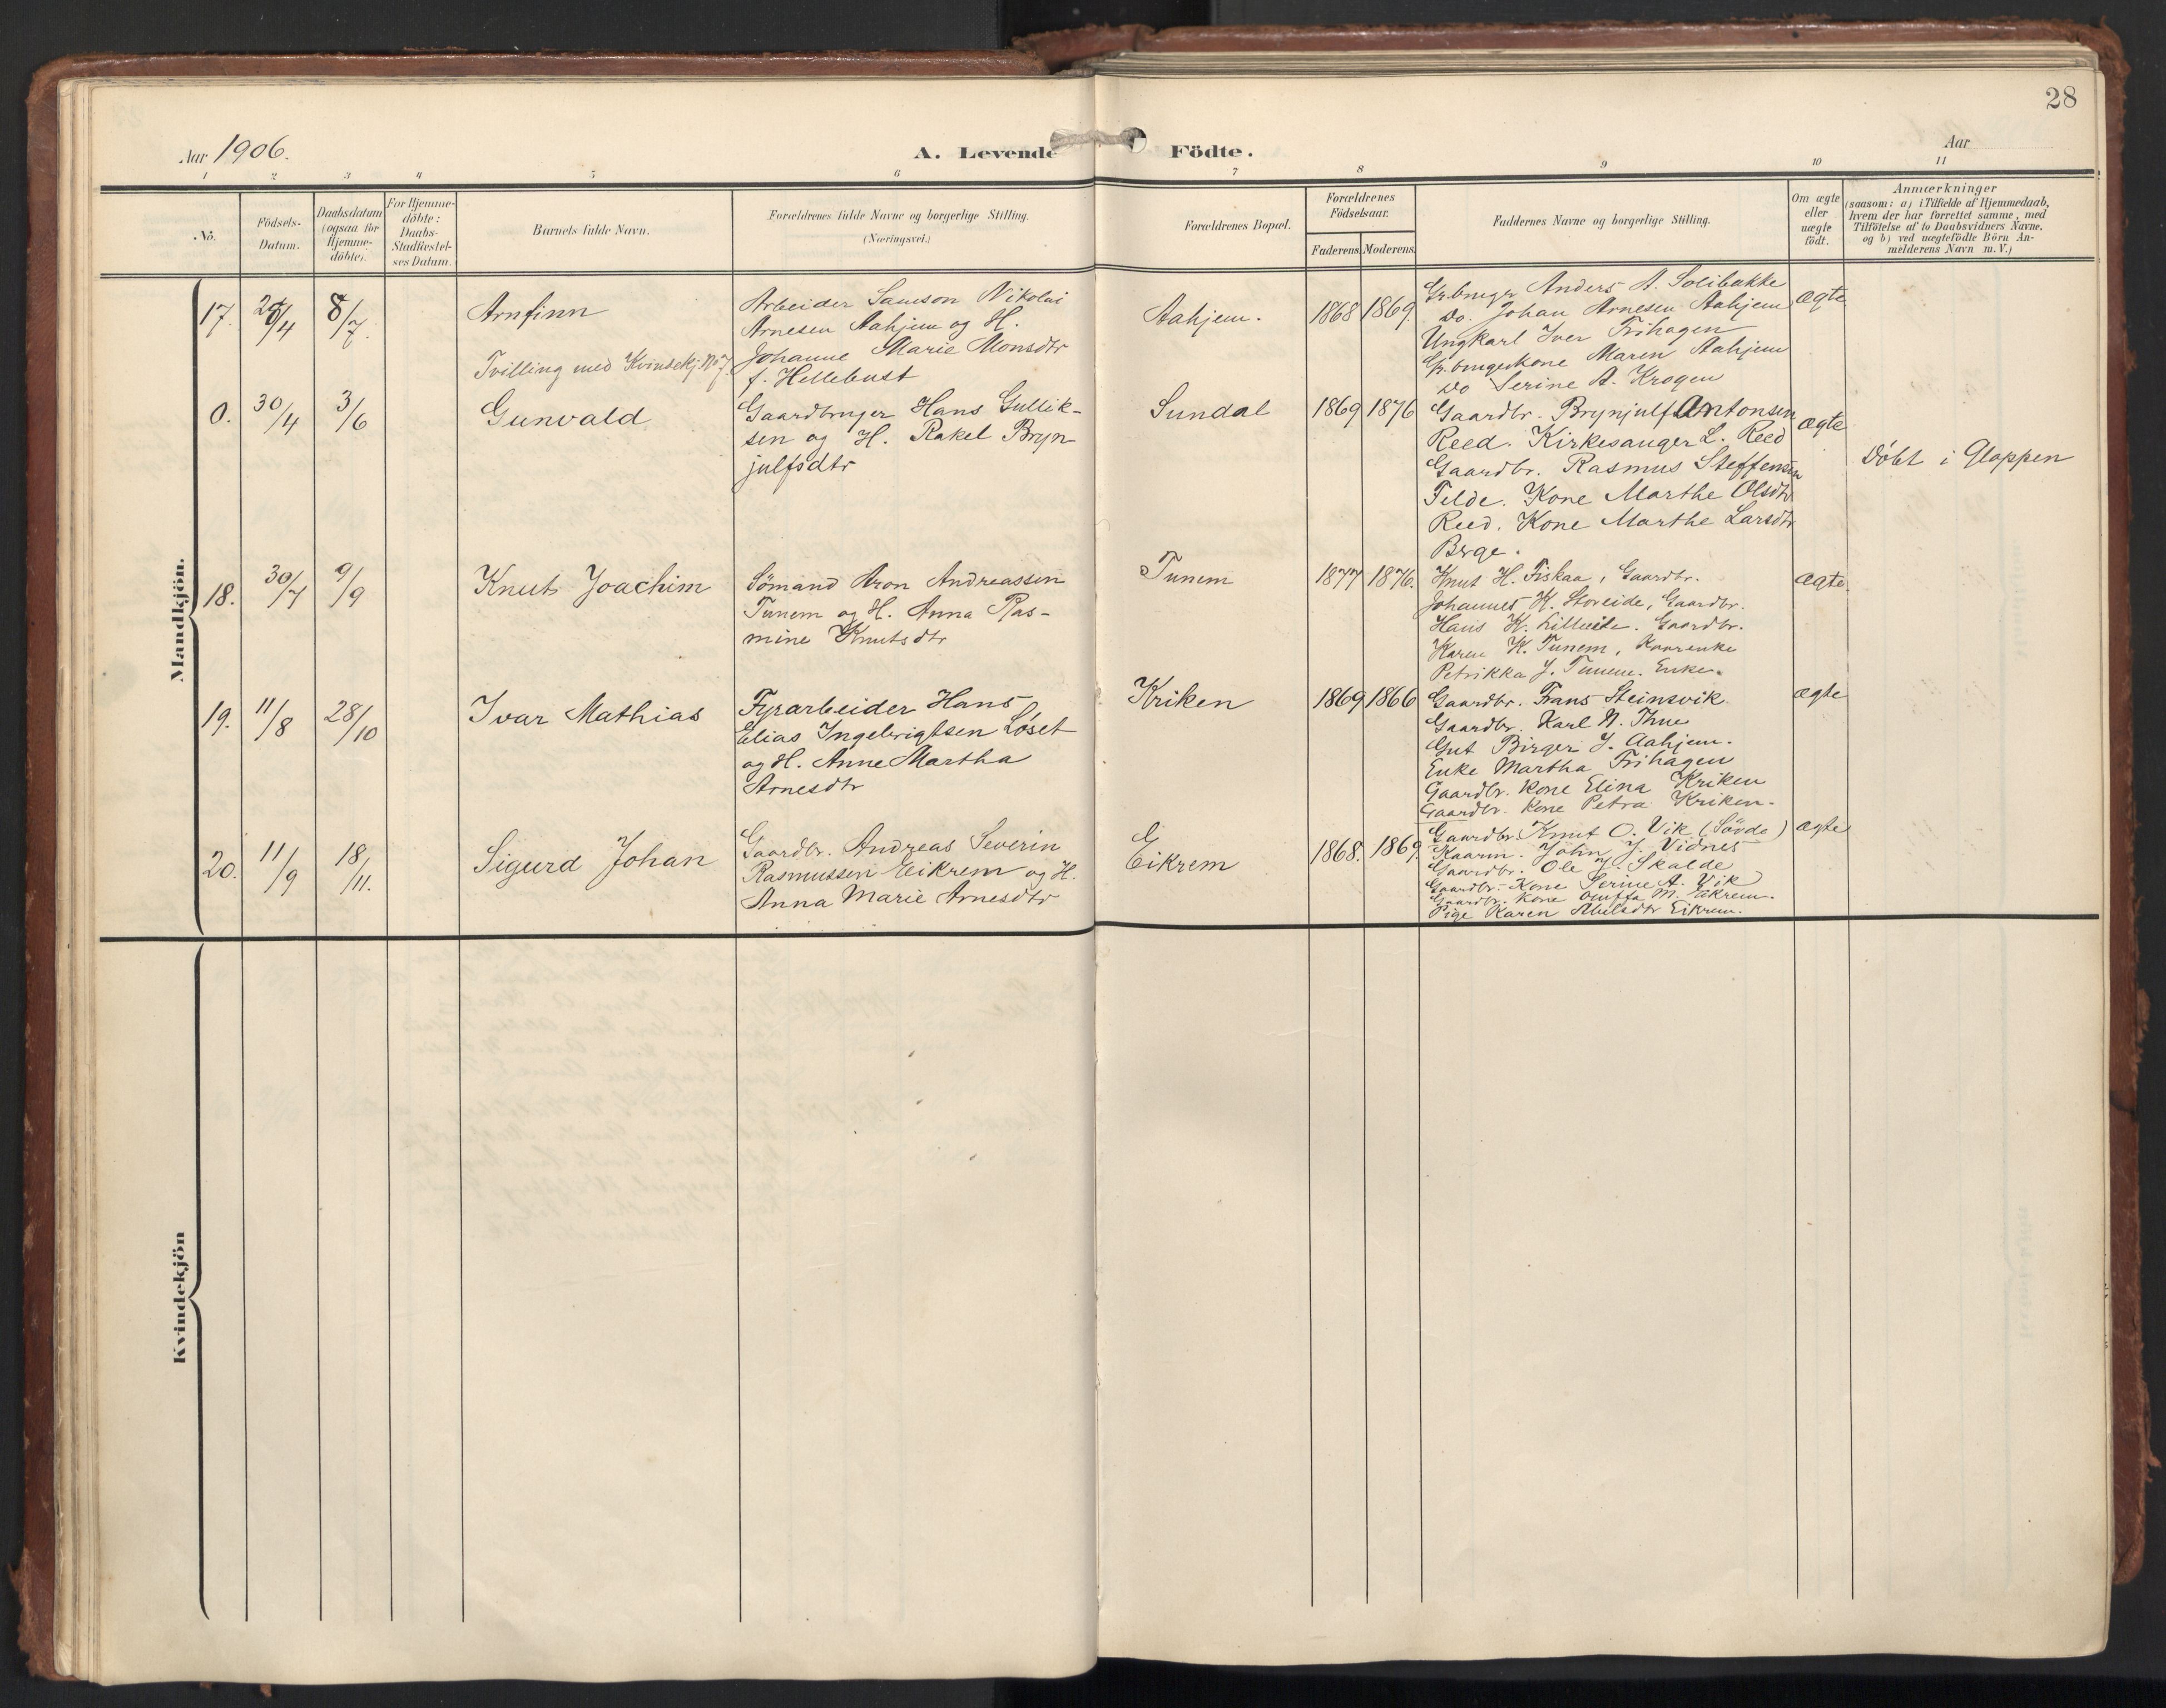 28
Aar 1906.
A. Levende Födte.
Aar
1 2 3 4 5 6 7 8 9 10 11
No.
Födsels-Datum.
Daabsdatum (ogsaa for Hjemme-döbte).
For Hjemme-döbte: Daabs-Stadfæstel-ses Datum.
Barnets fulde Navn.
Forældrenes fulde Navne og borgerlige Stilling.
(Næringsvei.)
Forældrenes Bopæl.
Forældrenes Födselsaar.
Faderens. Moderens.
Faddernes Navne og borgerlige Stilling.
Om ægte eller uægte födt.
Anmærkninger
(saasom: a) i Tilfælde af Hjemmedaab,
hvem der har forrettet samme, med
Tilföielse af to Daabsvidners Navne.
og b) ved uægtefödte Börn An-
melderens Navn m.V.)
Mandkjön.
17. /4 8/7.
Arnfinn
Tvilling med Kvindekj. No 7.
Arbeider Samson Nikolai
Arnesen Aahjem og H.
Johanne Marie Monsdtr
f. Hellebust
Aahjem.
1868 1869.
Gr.bruger Anders A. Solibakke
Do. Johan Arnesen Aahjem
Ungkarl Iver Frihagen
Gr.brugerkone Maren Aahjem
Do Serine A. Krogen
ægte
0. 30/4 3/6
Gunvald
Gaardbruger Hans Gullik-
sen og H. Rakel Bryn-
julfsdtr
Sundal
1869 1876
Gaardbr. Brynjulf Antonsen
Reed. Kirkesanger L. Reed
Gaardbr. Rasmus Steffensen
Felde. Kone Marthe Olsdtr
Reed. Kone Marthe Larsdtr
Berge.
ægte
Döbt i Gloppen
18. 30/7 9/9
Knut Joachim
Sömand Aron Andreassen
Tunem og H. Anna Ras-
mine Knutsdtr
Tunem
1877 1876.
Knut H. Fiskaa, Gaardbr.
Johannes K. Storeide, Gaardbr.
Hans K. Lilleeide. Gaardbr.
Karen K. Tunem, Kaarenke
Petrikka J. Tunem. Enke.
ægte.
19. 11/8 28/10
Ivar Mathias
Fyrarbeider Hans
Elias Ingebrigtsen Löset
og H. Anne Martha
Arnesdtr
Kriken
1869 1866
Gaardbr. Frans Steinsvik
Gaardbr. Karl N. Thue
Gut Birger J. Aahjem.
Enke Martha Frihagen
Gaardbr. Kone Elina Kriken
Gaardbr. Kone Petra Kriken.
ægte
20. 11/9 18/11.
Sigurd Johan
Gaardbr. Andreas Severin
Rasmussen Eikrem og H.
Anna Marie Arnesdtr
Eikrem
1868. 1869.
Gaardbr. Knut O. Vik (Sövde)
Kaarm. John J. Vidnes
Gaardbr. Ole J. Skalde
Gaardbr.-Kone Serine A. Vik
Gaardbr. Kone M. Eikrem.
Pige Karen Abelsdtr Eikrem.
ægte
Kvindekjön